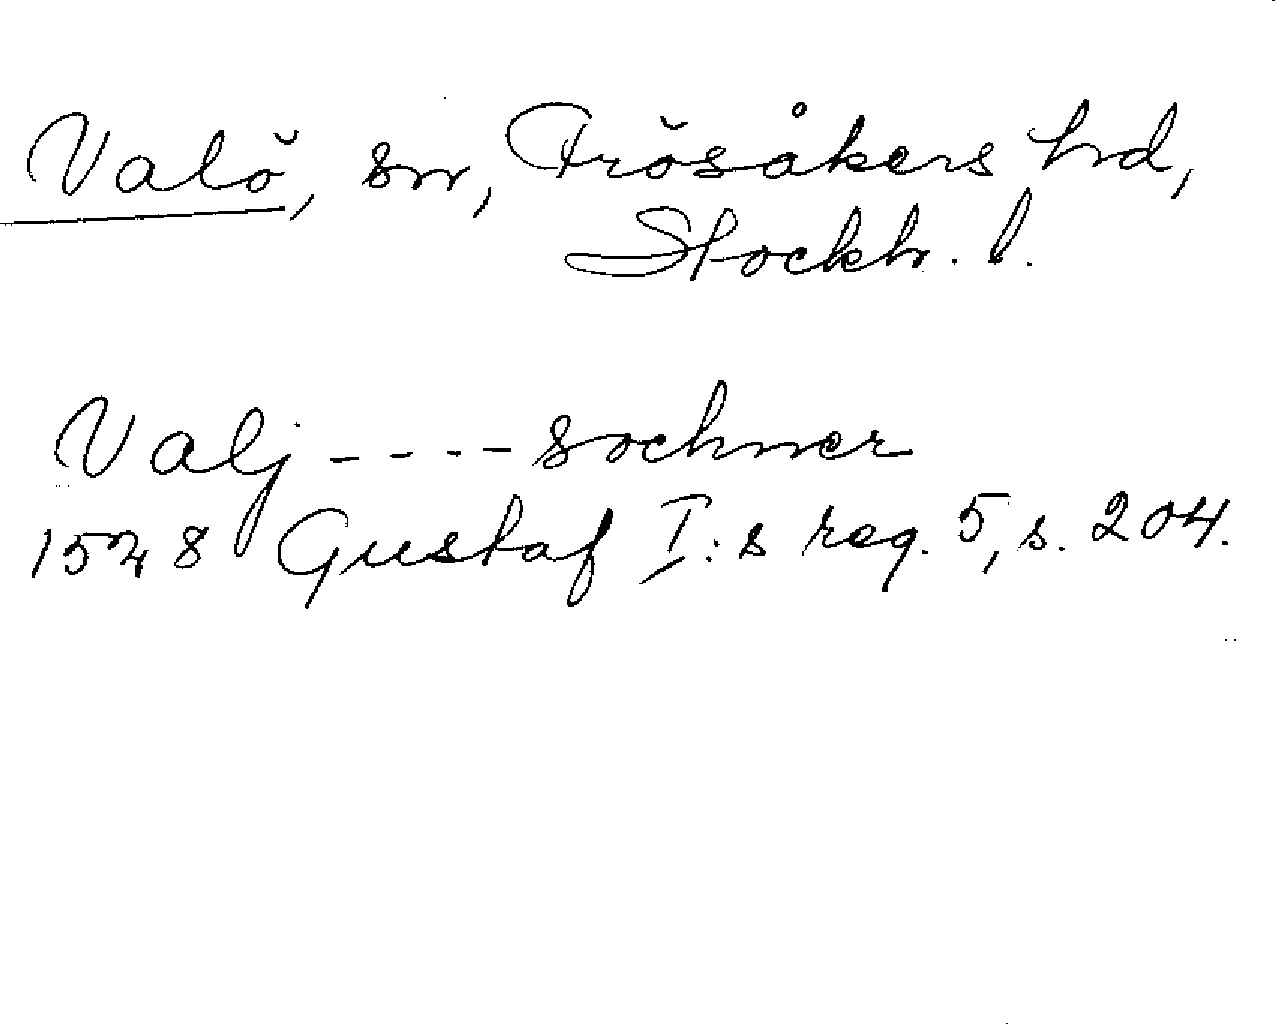 Valö, sn, Frösåkers hd,
Stockh. l.
Valj ---- sochner
1528 Gustaf I:s reg. 5, s. 204.